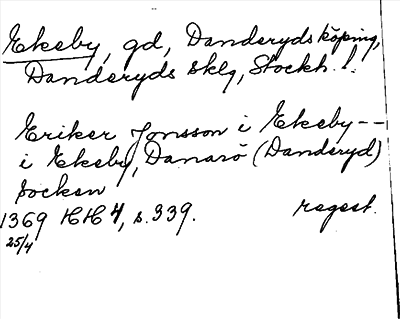 Ekeby, gd, Danderyds köping,
Danderyds sklg, Stockh. l.
Eriker Jonsson i Ekeby--
i Ekeby, Danarö (Danderyd)
socken
1369 HH 4, s. 339. regest.
25/4